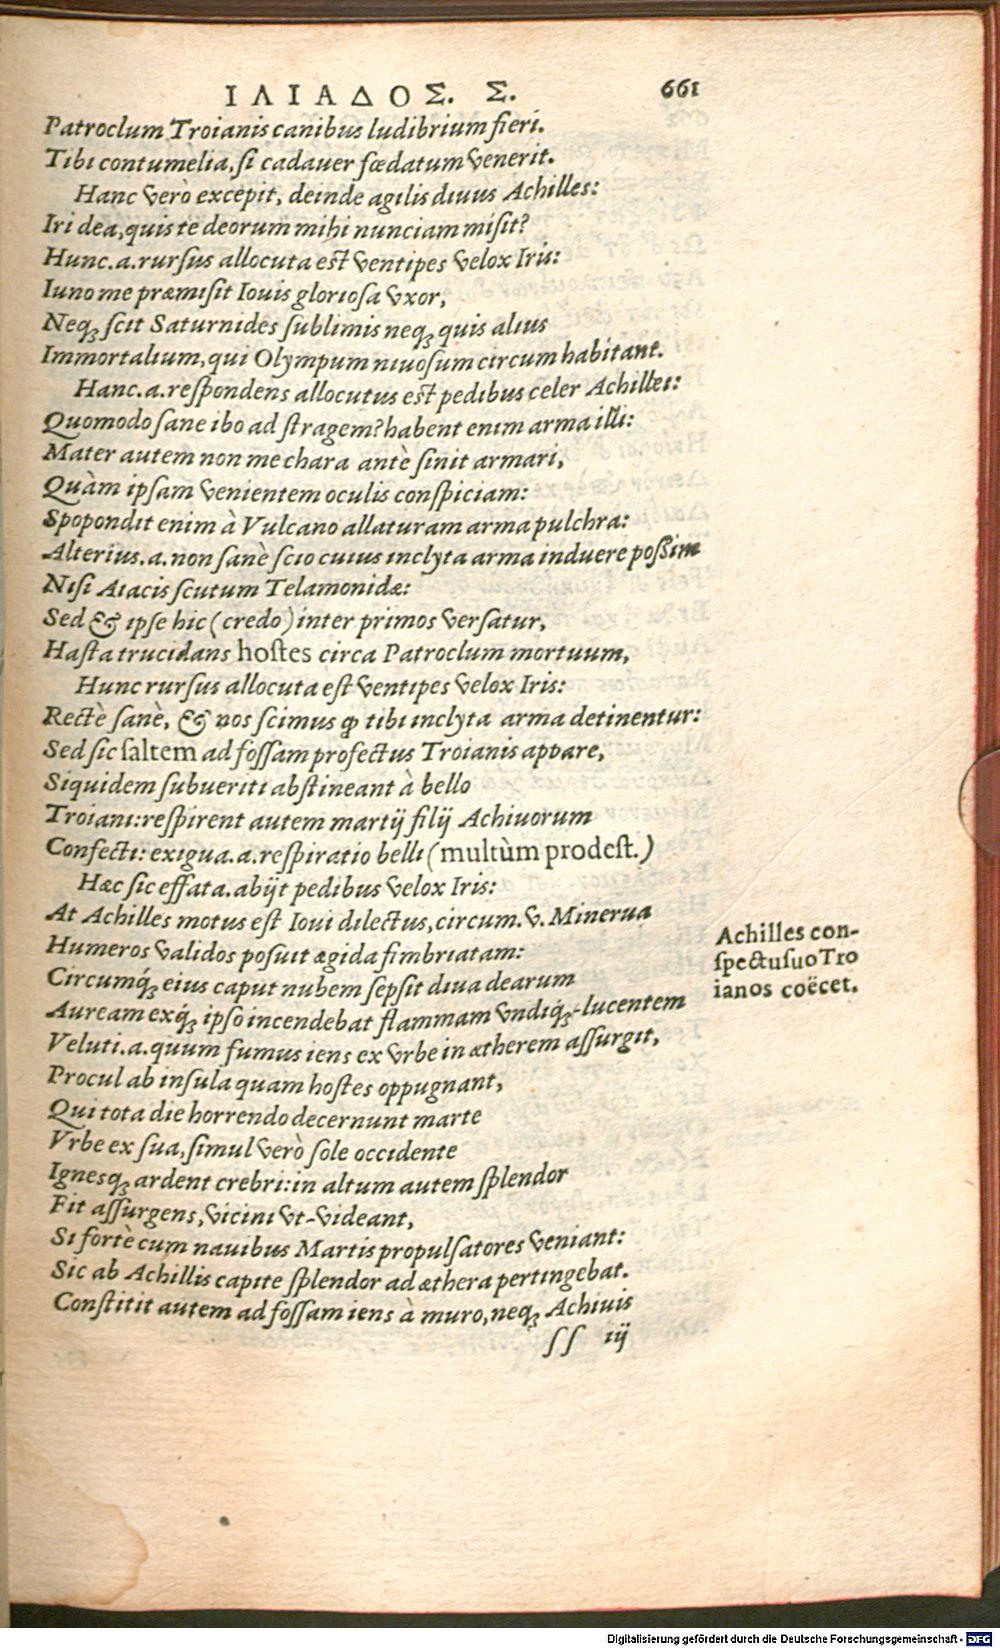 ΙΛΙΑΔΟΣ. Σ. 661
Patroclum Troianis canibus ludibrium fieri.
Tibi contumelia, si cadauer fœdatum venerit.
Hanc verò excepit, deinde agilis diuus Achilles:
Iri dea, quis te deorum mihi nunciam misit?
Hunc.a.rursus allocuta est ventipes velox Iris:
Iuno me præmisit Iouis gloriosa vxor,
Neq; scit Saturnides sublimis neq; quis alius
Immortalium, qui Olympum niuosum circum habitant.
Hanc.a.respondens allocutus est pedibus celer Achilles:
Quomodo sane ibo ad stragem? habent enim arma illi:
Mater autem non me chara antè sinit armari,
Quàm ipsam venientem oculis conspiciam:
Spopondit enim à Vulcano allaturam arma pulchra:
Alterius.a.non sanè scio cuius inclyta arma induere possim
Nisi Aiacis scutum Telamonidæ:
Sed & ipse hic (credo) inter primos versatur,
Hasta trucidans hostes circa Patroclum mortuum,
Hunc rursus allocuta est ventipes velox Iris:
Rectè sanè, & nos scimus ꝙ tibi inclyta arma detinentur:
Sed sic saltem ad fossam profectus Troianis appare,
Siquidem subueriti abstineant à bello
Troiani: respirent autem martij filij Achiuorum
Confecti: exigua.a.respiratio belli (multùm prodest.)
Hæc sic effata.abijt pedibus velox Iris:
At Achilles motus est Ioui dilectus, circum.v. Minerua
Humeros validos posuit ægida fimbriatam:
Circumq́; eius caput nubem sepsit diua dearum
Auream exq́; ipso incendebat flammam vndiq́;-lucentem
Veluti.a.quum fumus iens ex vrbe in ætherem assurgit,
Procul ab insula quam hostes oppugnant,
Qui tota die horrendo decernunt marte
Vrbe ex sua, simul verò sole occidente
Ignesq; ardent crebri: in altum autem splendor
Fit assurgens, vicini vt-videant,
Si fortè cum nauibus Martis propulsatores veniant:
Sic ab Achillis capite splendor ad æthera pertingebat.
Constitit autem ad fossam iens à muro, neq; Achiuis
ſſ iij
Achilles con-
spectu suo Tro
ianos coëcet.
Digitalisierung gefördert durch die Deutsche Forschungsgemeinschaft - DFG